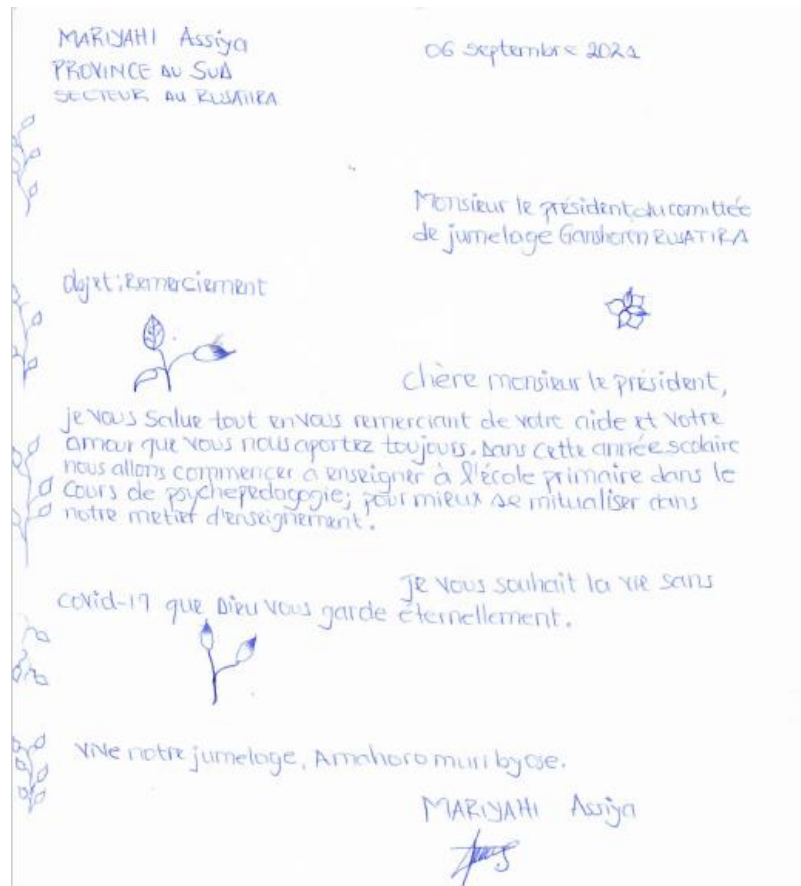 MARIYAHI Assiya
06 septembre 2021
PROVINCE DU SUD
SECTEUR DU RUSATIRA
Monsieur le président du comittée
de jumelage Ganshoren RUSATIRA
objet: Remerciement
chère monsieur le président,
je vous salue tout en vous remerciant de votre aide et votre
amour que vous nous aportez toujours. Dans cette année scolaire
nous allons commencer à enseigner à l'école primaire dans le
cours de psychepedagogie; pour mieux se mitualiser dans
notre metier d'enseignement.
je vous souhait la vie sans
covid-19 que Dieu vous garde éternellement.
vive notre jumelage, Amahoro muri byose.
MARIYAHI Assiya